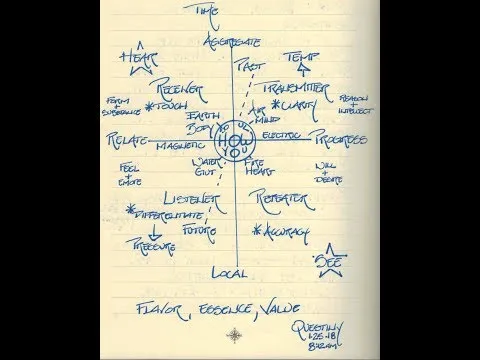 TIME
AGGREGATE
HEAR
PAST
TEMP
RECEIVER
TRANSMITTER
FORM + SUBSTANCE
*TOUCH
*CLARITY
REASON + INTELLECT
EARTH BODY
AIR MIND
RELATE
MAGNETIC
HOW
ELECTRIC
PROGRESS
FEEL + EMOTE
WATER GUT
FIRE HEART
WILL + DESIRE
LISTENER
REPEATER
*DIFFERENTIATE
FUTURE
*ACCURACY
PRESSURE
SEE
LOCAL
FLAVOR, ESSENCE, VALUE
1-25-18